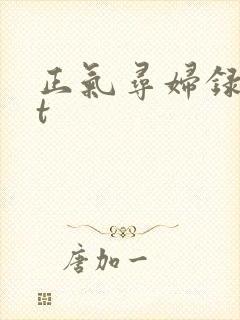 正氣尋婦録
t
唐加一